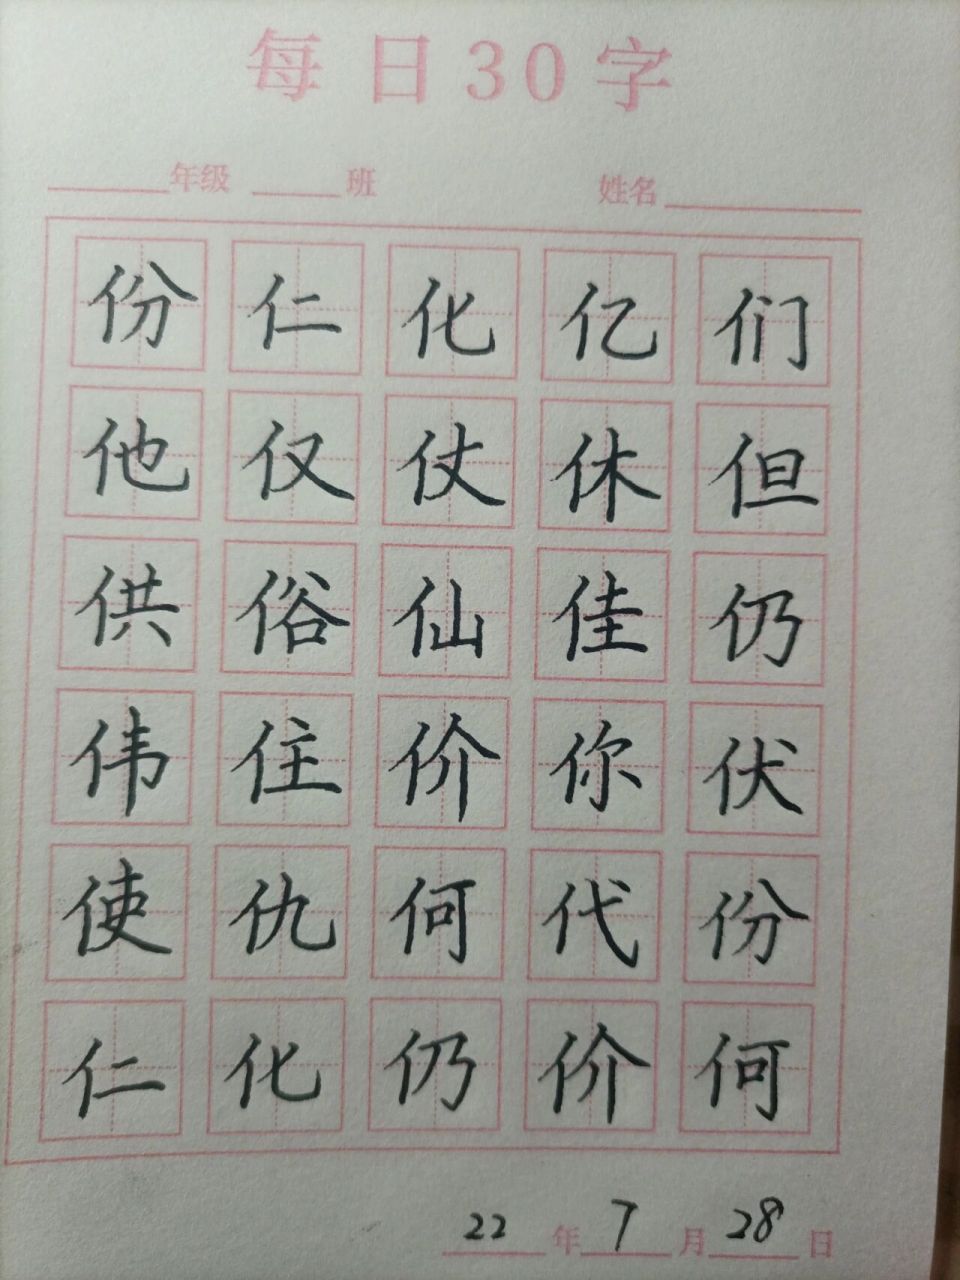 每日30字
年级 班 姓名
份仁化亿们
他仅仗休但
供俗仙佳仍
伟住价你伏
使仇何代份
仁化仍价何
22年7月28日